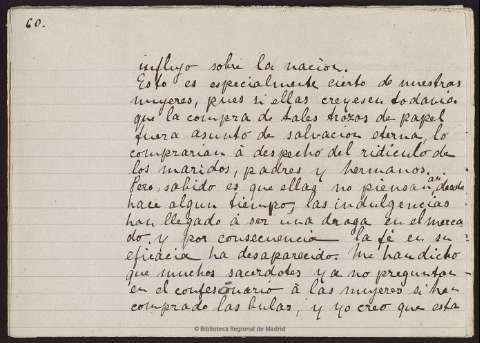 60.
influjo sobre la nacion.
Esto es especialmente cierto de nuestras
mujeres, pues si ellas creyesen todavia
que la compra de tales trozos de papel
fuera asunto de salvacion eterna, lo
comprarian à despecho del ridiculo de
los maridos, padres y hermanos.
Pero, sabido es que ellas no piensan asi, desde
hace algun tiempo, las indulgencias
han llegado à ser una droga en el merca
do, y por consecuencia la fé en su
eficacia ha desaparecido. Me han dicho
que muchos sacerdotes ya no preguntan
en el confesonario à las mujeres si han
comprado las bulas, y yo creo que esta
© Biblioteca Regional de Madrid